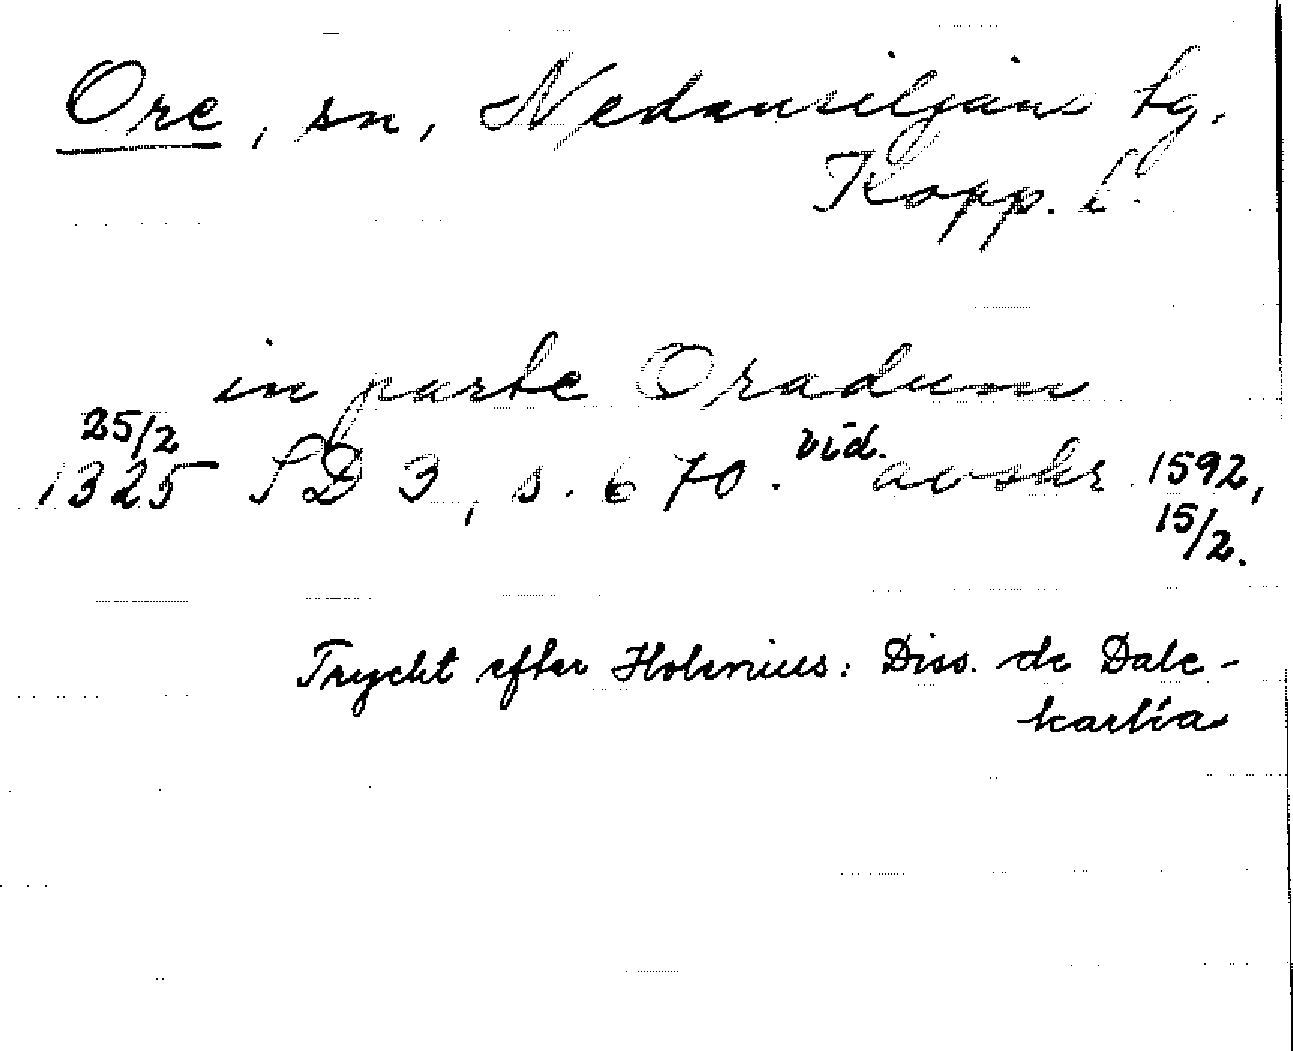 Ore, sn, Nedansiljans tg.
Kopp. l.
in parte Oradum
25/2
1325 SD 3, s. 670. vid. avskr 1592,
15/2.
Tryckt efter Holenius: Diss. de Dale-
karlia